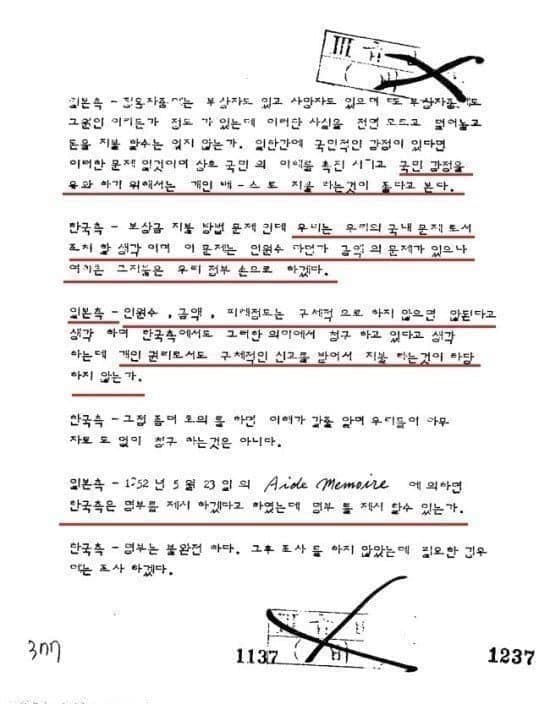 III 급
일본측 - 징용자중에는 부상자도 있고 사망자도 있으며 또 부상자중에도
그원인 이라든가 정도 가 있는데 이러한 사실을 전연 모르고 덮어놓고
돈을 지불 할수는 없지 않는가. 일한간에 국민적인 감정이 있다면
이러한 문제 일것이며 상호 국민 의 이해를 촉진 시키고 국민 감정을
유화 하기 위해서는 개인 베-스로 지불 하는것이 좋다고 본다.
한국측 - 보상금 지불 방법 문제 인데 우리는 우리의 국내 문제 로서
조처 할 생각 이며 이 문제는 인원수 라던가 금액 의 문제가 있으나
여하튼 그지불은 우리 정부 손으로 하겠다.
일본측 - 인원수 , 금액 , 피해정도는 구체적 으로 하지 않으면 않된다고
생각 하며 한국측에서도 그러한 의미에서 청구 하고 있다고 생각
하는데 개인 권리로서도 구체적인 신고를 받어서 지불 하는것이 타당
하지 않는가.
한국측 - 그점 좀더 토의 를 하면 이해가 갈줄 알며 우리들이 아무
자료 도 없이 청구 하는것은 아니다.
일본측 - 1952 년 5 월 23 일 의 Aide Memoire 에 의하면
한국측은 명부를 제시 하겠다고 하였는데 명부 를 제시 할수 있는가.
한국측 - 명부는 불완전 하다. 그후 조사 를 하지 않았는데 필요한 경우
에는 조사 하겠다.
307
1137
1237